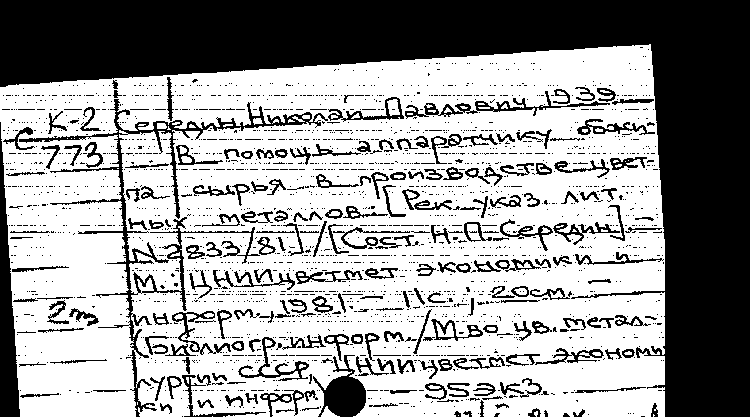 К-2 Середин, Николай Павлович, 1939
С 773 В помощь аппаратчику обжи-
га сырья в производстве цвет-
ных металлов: [Рек. указ. лит.
N 2833/81] / [Сост. Н.П. Середин]. –
М.: ЦНИИцветмет экономики и
информ., 1981 – 11с.; 20см. –
2пз
(Библиогр. информ. / М-во цв. метал-
лургии СССР, ЦНИИцветмет экономи
ки и информ) – 95экз.